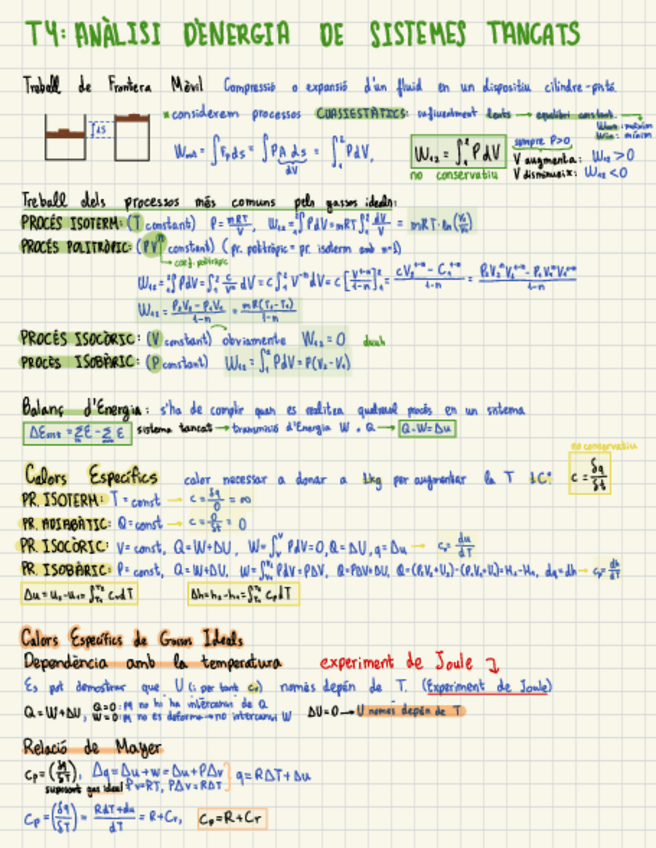 T4: ANÀLISI D'ENERGIA DE SISTEMES TANCATS
Treball de Frontera Mòvil Compressió o expansió d'un fluid en un dispositiu cilindre-pistó.
* considerem processos CUASIESTÀTICS: suficientment lents → equilibri constant.
ds
Wout = ∫F ds = ∫PA ds = ∫₁² P dV,
dV
W₁₂ = ∫₁² P dV
no conservatiu
sempre P>0
V augmenta: W₁₂ > 0
V disminueix: W₁₂ < 0
Treball dels processos més comuns pels gasos ideals:
PROCÉS ISOTERM: (T constant) P = mRT/V, W₁₂ = ∫₁² P dV = mRT ∫₁² dV/V = mRT·ln(V₂/V₁)
PROCÉS POLITRÒPIC: (PVⁿ constant) (pr. politròpic = pr. isoterm amb n=1)
→ coef. politròpic
W₁₂ = ∫₁² P dV = ∫₁² c/Vⁿ dV = c∫₁² V⁻ⁿ dV = c[V¹⁻ⁿ/1-n]₁² = cV₂¹⁻ⁿ - cV₁¹⁻ⁿ/1-n = P₂V₂ⁿV₂¹⁻ⁿ - P₁V₁ⁿV₁¹⁻ⁿ/1-n
W₁₂ = P₂V₂ - P₁V₁/1-n = mR(T₂-T₁)/1-n
PROCÉS ISOCÒRIC: (V constant) obviamente W₁₂ = 0 duuh
PROCÉS ISOBÀRIC: (P constant) W₁₂ = ∫₁² P dV = P(V₂-V₁)
Balanç d'Energia: s'ha de complir quan es realitza qualsevol procés en un sistema
sistema tancat → transmissió d'Energia W o Q → Q-W=ΔU
no conservatiu
Calors Específics calor necessar a donar a 1kg per augmentar la T 1C° c = δq/δt
PR. ISOTERM: T = const → c = δq/0 = ∞
PR. ADIABÀTIC: Q = const → c = 0/δt = 0
PR. ISOCÒRIC: V = const, Q = W+ΔU, W = ∫P dV = 0, Q = ΔU, q = Δu → cᵥ = du/dT
PR. ISOBÀRIC: P = const, Q = W+ΔU, W = ∫P dV = PΔV, Q = PΔV+ΔU, Q = (P₂V₂+U₂)-(P₁V₁+U₁) = H₂-H₁, dq = dh → cₚ = dh/dT
Δu = u₂-u₁ = ∫ cᵥ dT Δh = h₂-h₁ = ∫ cₚ dT
Calors Específics de Gasos Ideals
Dependència amb la temperatura experiment de Joule
Es pot demostrar que U (i per tant cᵥ) només depèn de T. (Experiment de Joule)
Q = W+ΔU, Q=0: pq no hi ha intercanvi de Q
W=0: pq no es deforma → no intercanvi W ΔU=0 → U només depèn de T
Relació de Mayer
Cp = (δq/δT), Δq = Δu+w = Δu+PΔv q = RΔT+Δu
suposant gas ideal Pv=RT, PΔv=RΔT
Cp = (δq/δT) = RdT+du/dT = R+Cv, Cp = R+Cv